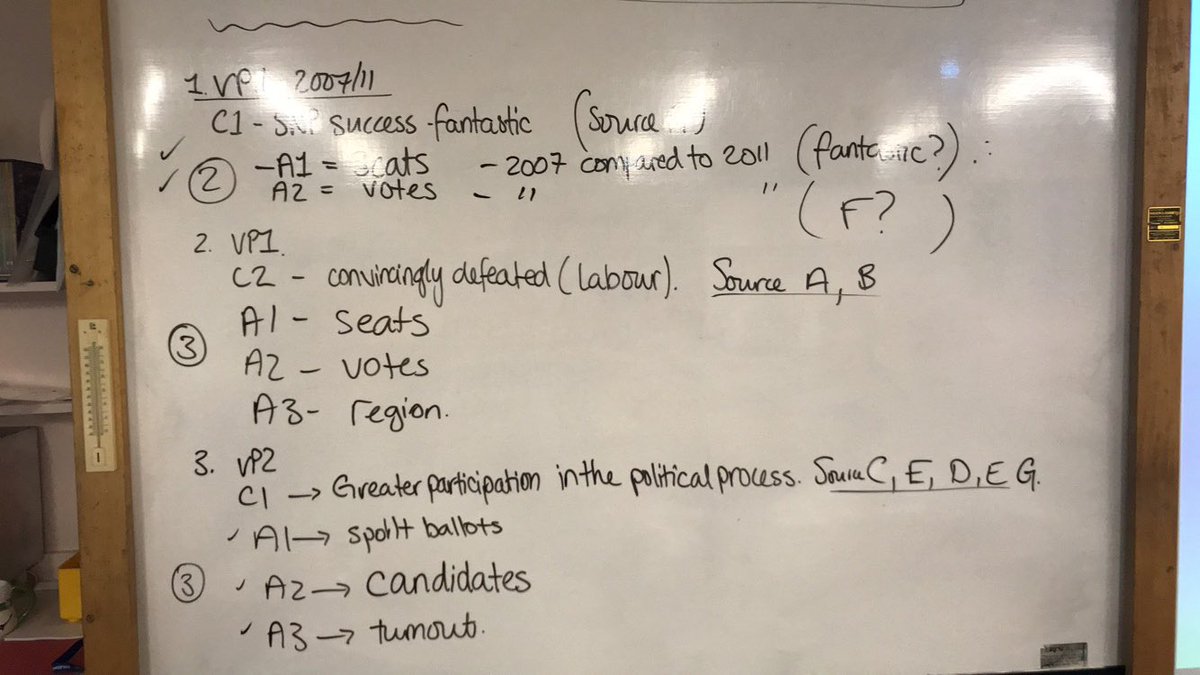 1. VP1 2007/11
C1 - SNP success - fantastic (Source )
② - A1 = Seats - 2007 compared to 2011 (fantastic?) ∴
A2 = votes - " " (F?)
2. VP1.
C2 - convincingly defeated (labour). Source A, B
③ A1 - seats
A2 - votes
A3 - region.
3. VP2
C1 → Greater participation in the political process. Source C, E, D, E G.
A1 → spoilt ballots
③ A2 → candidates
A3 → turnout.